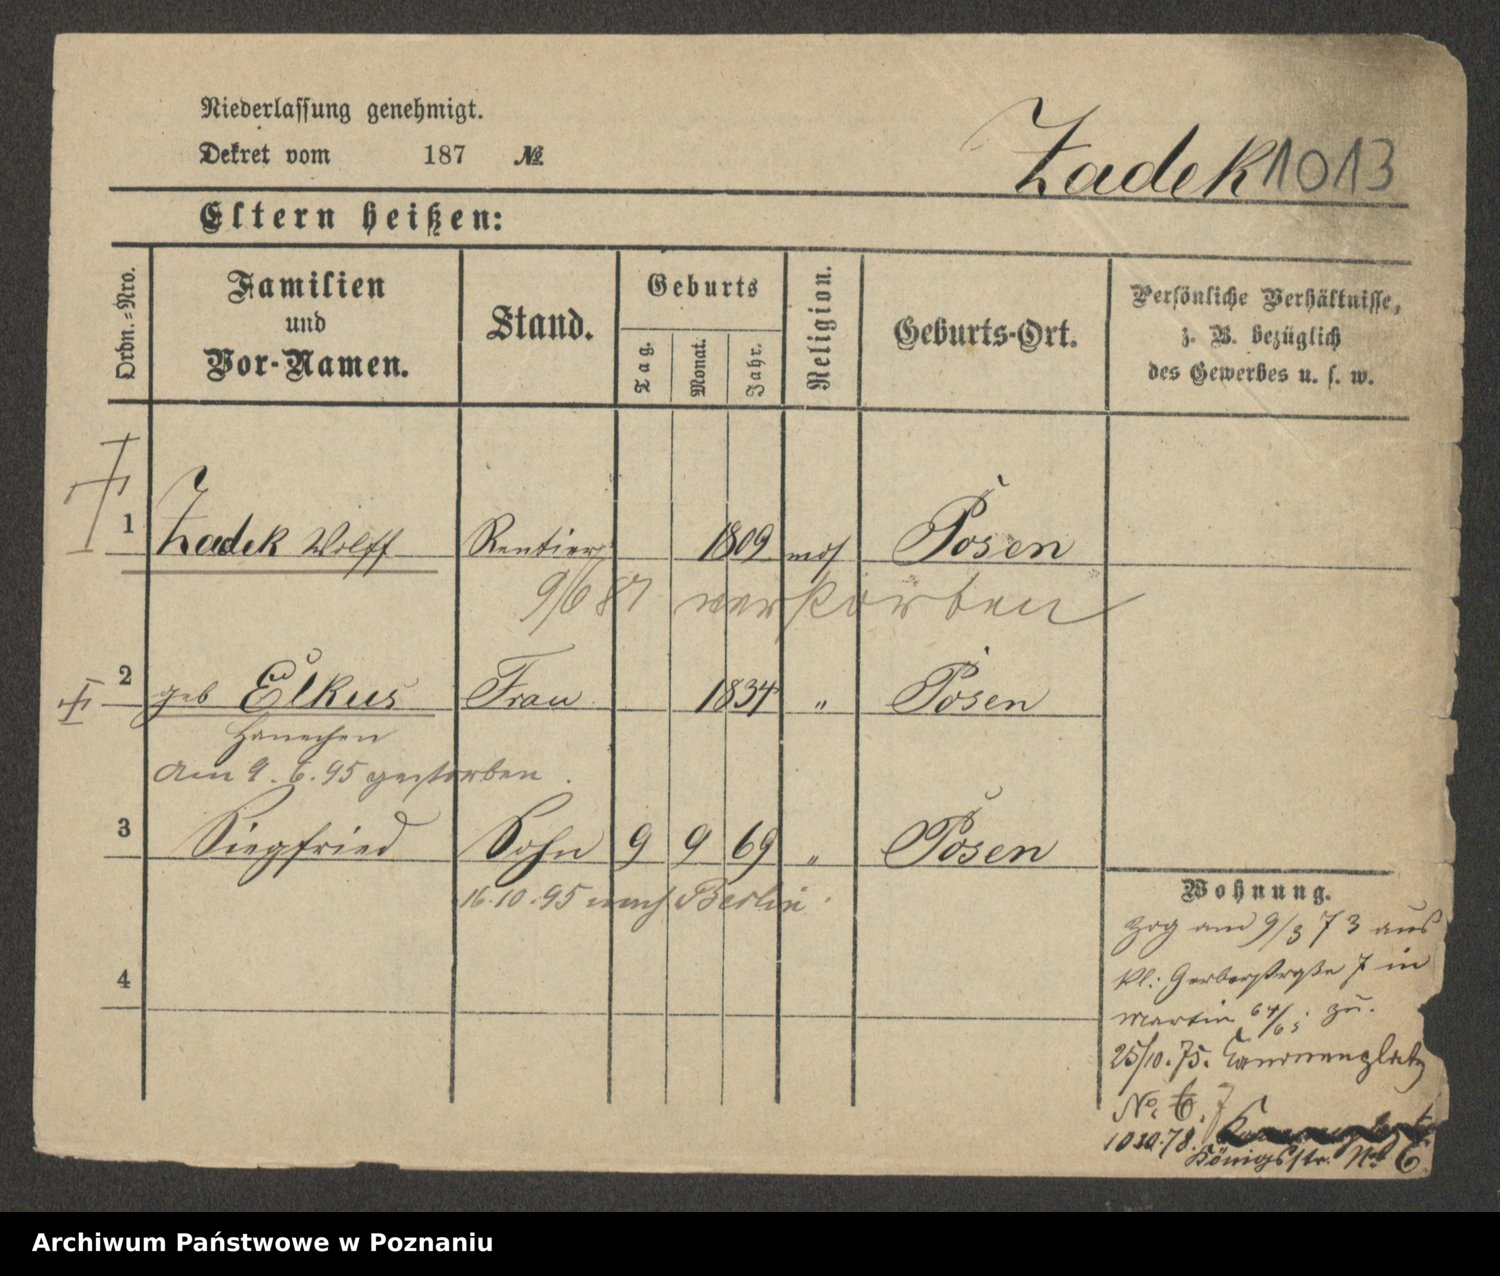 Niederlassung genehmigt.
Dekret vom 187 №
Zadek 1013
Eltern heißen:
Ordn.=Nro.
Familien
und
Vor-Namen.
Stand.
Geburts
Tag.
Monat.
Jahr.
Religion.
Geburts-Ort.
Persönliche Verhältnisse,
z. B. bezüglich
des Gewerbes u. s. w.
1 Zadek Wolff Rentier 1809 mos Posen
9/6 87 verstorben
2 geb Elkus Frau 1834 " Posen
Hannchen
Am 9. 6. 95 gestorben.
3 Siegfried Sohn 9 9 69 " Posen
16.10.95 nach Berlin.
4
Wohnung.
zog am 9/3 73 aus
kl: Gerberstraße 7 in
Martin 64/65 zu.
25/10.75. Kanonenplatz
No. 6. 7
Königsstr. No 6
Archiwum Państwowe w Poznaniu